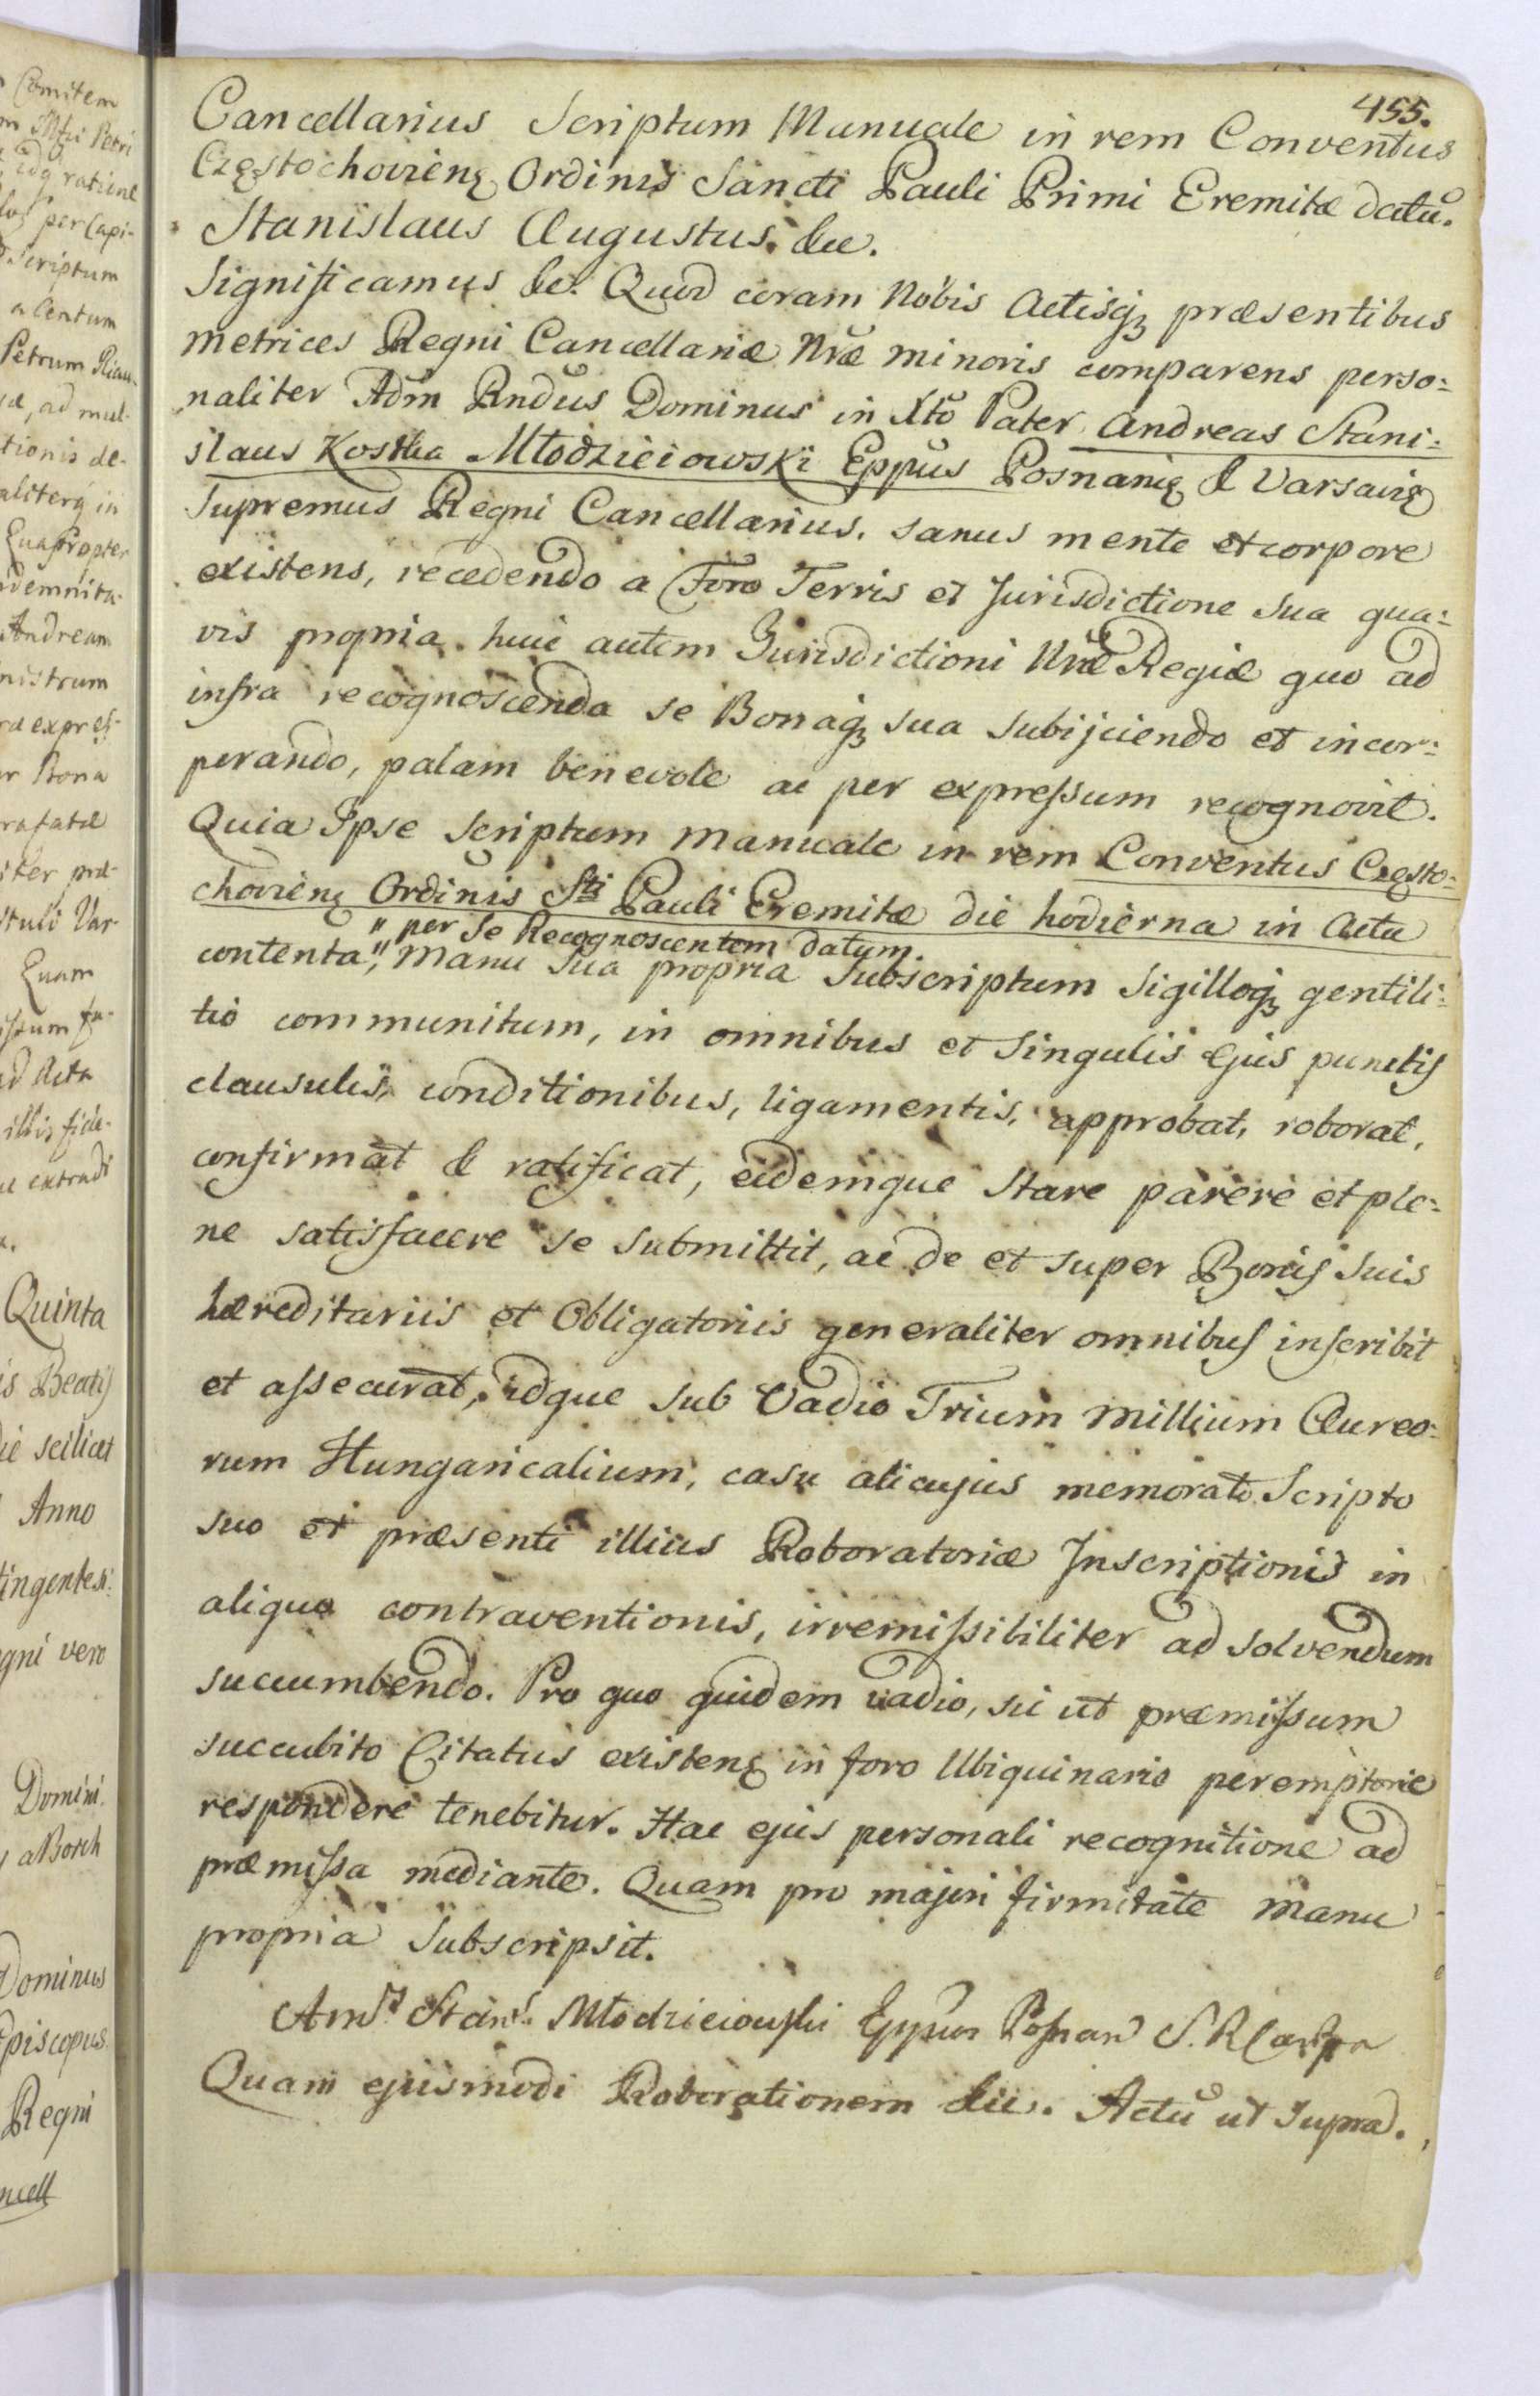 455.
Cancellarius Scriptum Manuale in rem Conventus
Częstochovienę Ordinis Sancti Pauli Primi Eremitæ datū.
Stanislaus Augustus. &c.
Significamus &c. Quod coram Nobis Actisqȝ præsentibus
Metrices Regni Cancellariæ Nræ minoris comparens perso:
naliter Adm Rndus Dominus in Xto Pater Andreas Stani:
slaus Kostka Młodzieiowski Eppus Posnanię & Varsavię
Supremus Regni Cancellarius, sanus mente et corpore
existens, recedendo a Foro Terris et Jurisdictione sua qua:
vis propria. huic autem Jurisdictioni Nræ Regiæ quo ad
infra recognoscenda se Bonaqȝ sua subijciendo et incor:
porando, palam benevole ac per expressum recognovit.
Quia Ipse Scriptum manuale in rem Conventus Często:
chovienę Ordinis Sti Pauli Eremitæ die hodierna in Acta
" per se Recognoscentem datum.
contenta," Manu Sua propria Subscriptum Sigilloqȝ gentili:
tio communitum, in omnibus et Singulis Ejus punctis
clausulis, conditionibus, ligamentis, approbat, roborat,
confirmat & ratificat, eidemque stare parere et ple:
ne satisfacere se submittit, ac de et super Bonis suis
hæreditariis et Obligatoriis generaliter omnibus inscribit
et assecurat, idque sub Vadio Trium Millium Aureo:
rum Hungaricalium, casu alicujus memorato Scripto
suo et præsenti illius Roboratoriæ Inscriptionis in
aliquo contraventionis, irremissibiliter ad solvendum
succumbendo. Pro quo quidem vadio, sic ut præmissum
succubito Citatus existenę in foro Ubiquinario peremptorie
respondere tenebitur. Hac ejus personali recognitione ad
præmissa mediante. Quam pro majori firmitate Manu
propria Subscripsit.
Stans. Młodzieiowski Eppus Posnan S. R.
Quam ejusmodi Roborationem &c. Actū ut Supra.